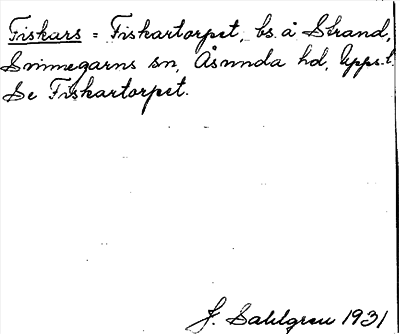 Fiskars = Fiskartorpet, bs. å Strand,
Svinnegarns sn, Åsunda hd, Upps. l.
Se Fiskartorpet.
J. Sahlgren 1931